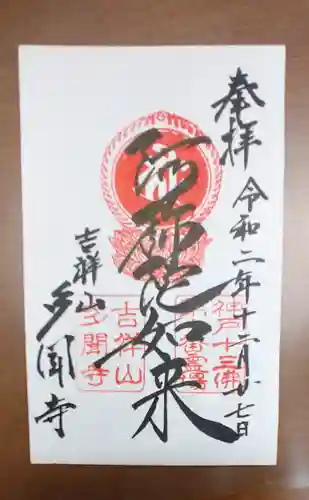 奉拝 令和二年十二月廿七日
阿弥陀如来
吉祥山
多聞寺
神戸十三佛
吉祥山
多聞寺